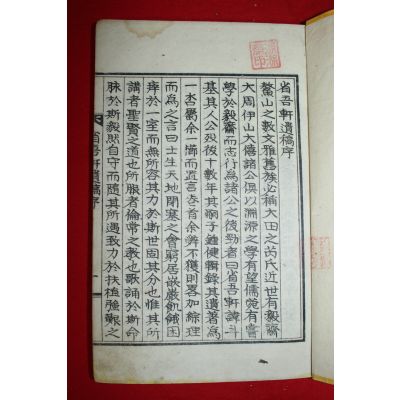 省吾軒遺稿序
鰲山之數文雅舊族必稱大田之芮氏近世有毅齋
大周伊山大僖諸公俱以淵源之學有望儒苑有嘗
學於毅齋而志行爲諸公之後勁者曰省吾軒諱斗
基其人公歿後十數年其嗣子鍾健輯錄其遺著爲
一𢎥屬余一言而置諸卷首余辭不獲則畧加綜理
而爲之言曰士生天地閉塞之會窮居嵌巖飢餓困
痒於一室而無所容其力於斯世固其分也惟其所
講者聖賢之道也所服者倫常之敎也歌誦於斯命
脉於斯毅然自守而隨其所遇致力於扶植強艱之
省吾軒遺稿序
一